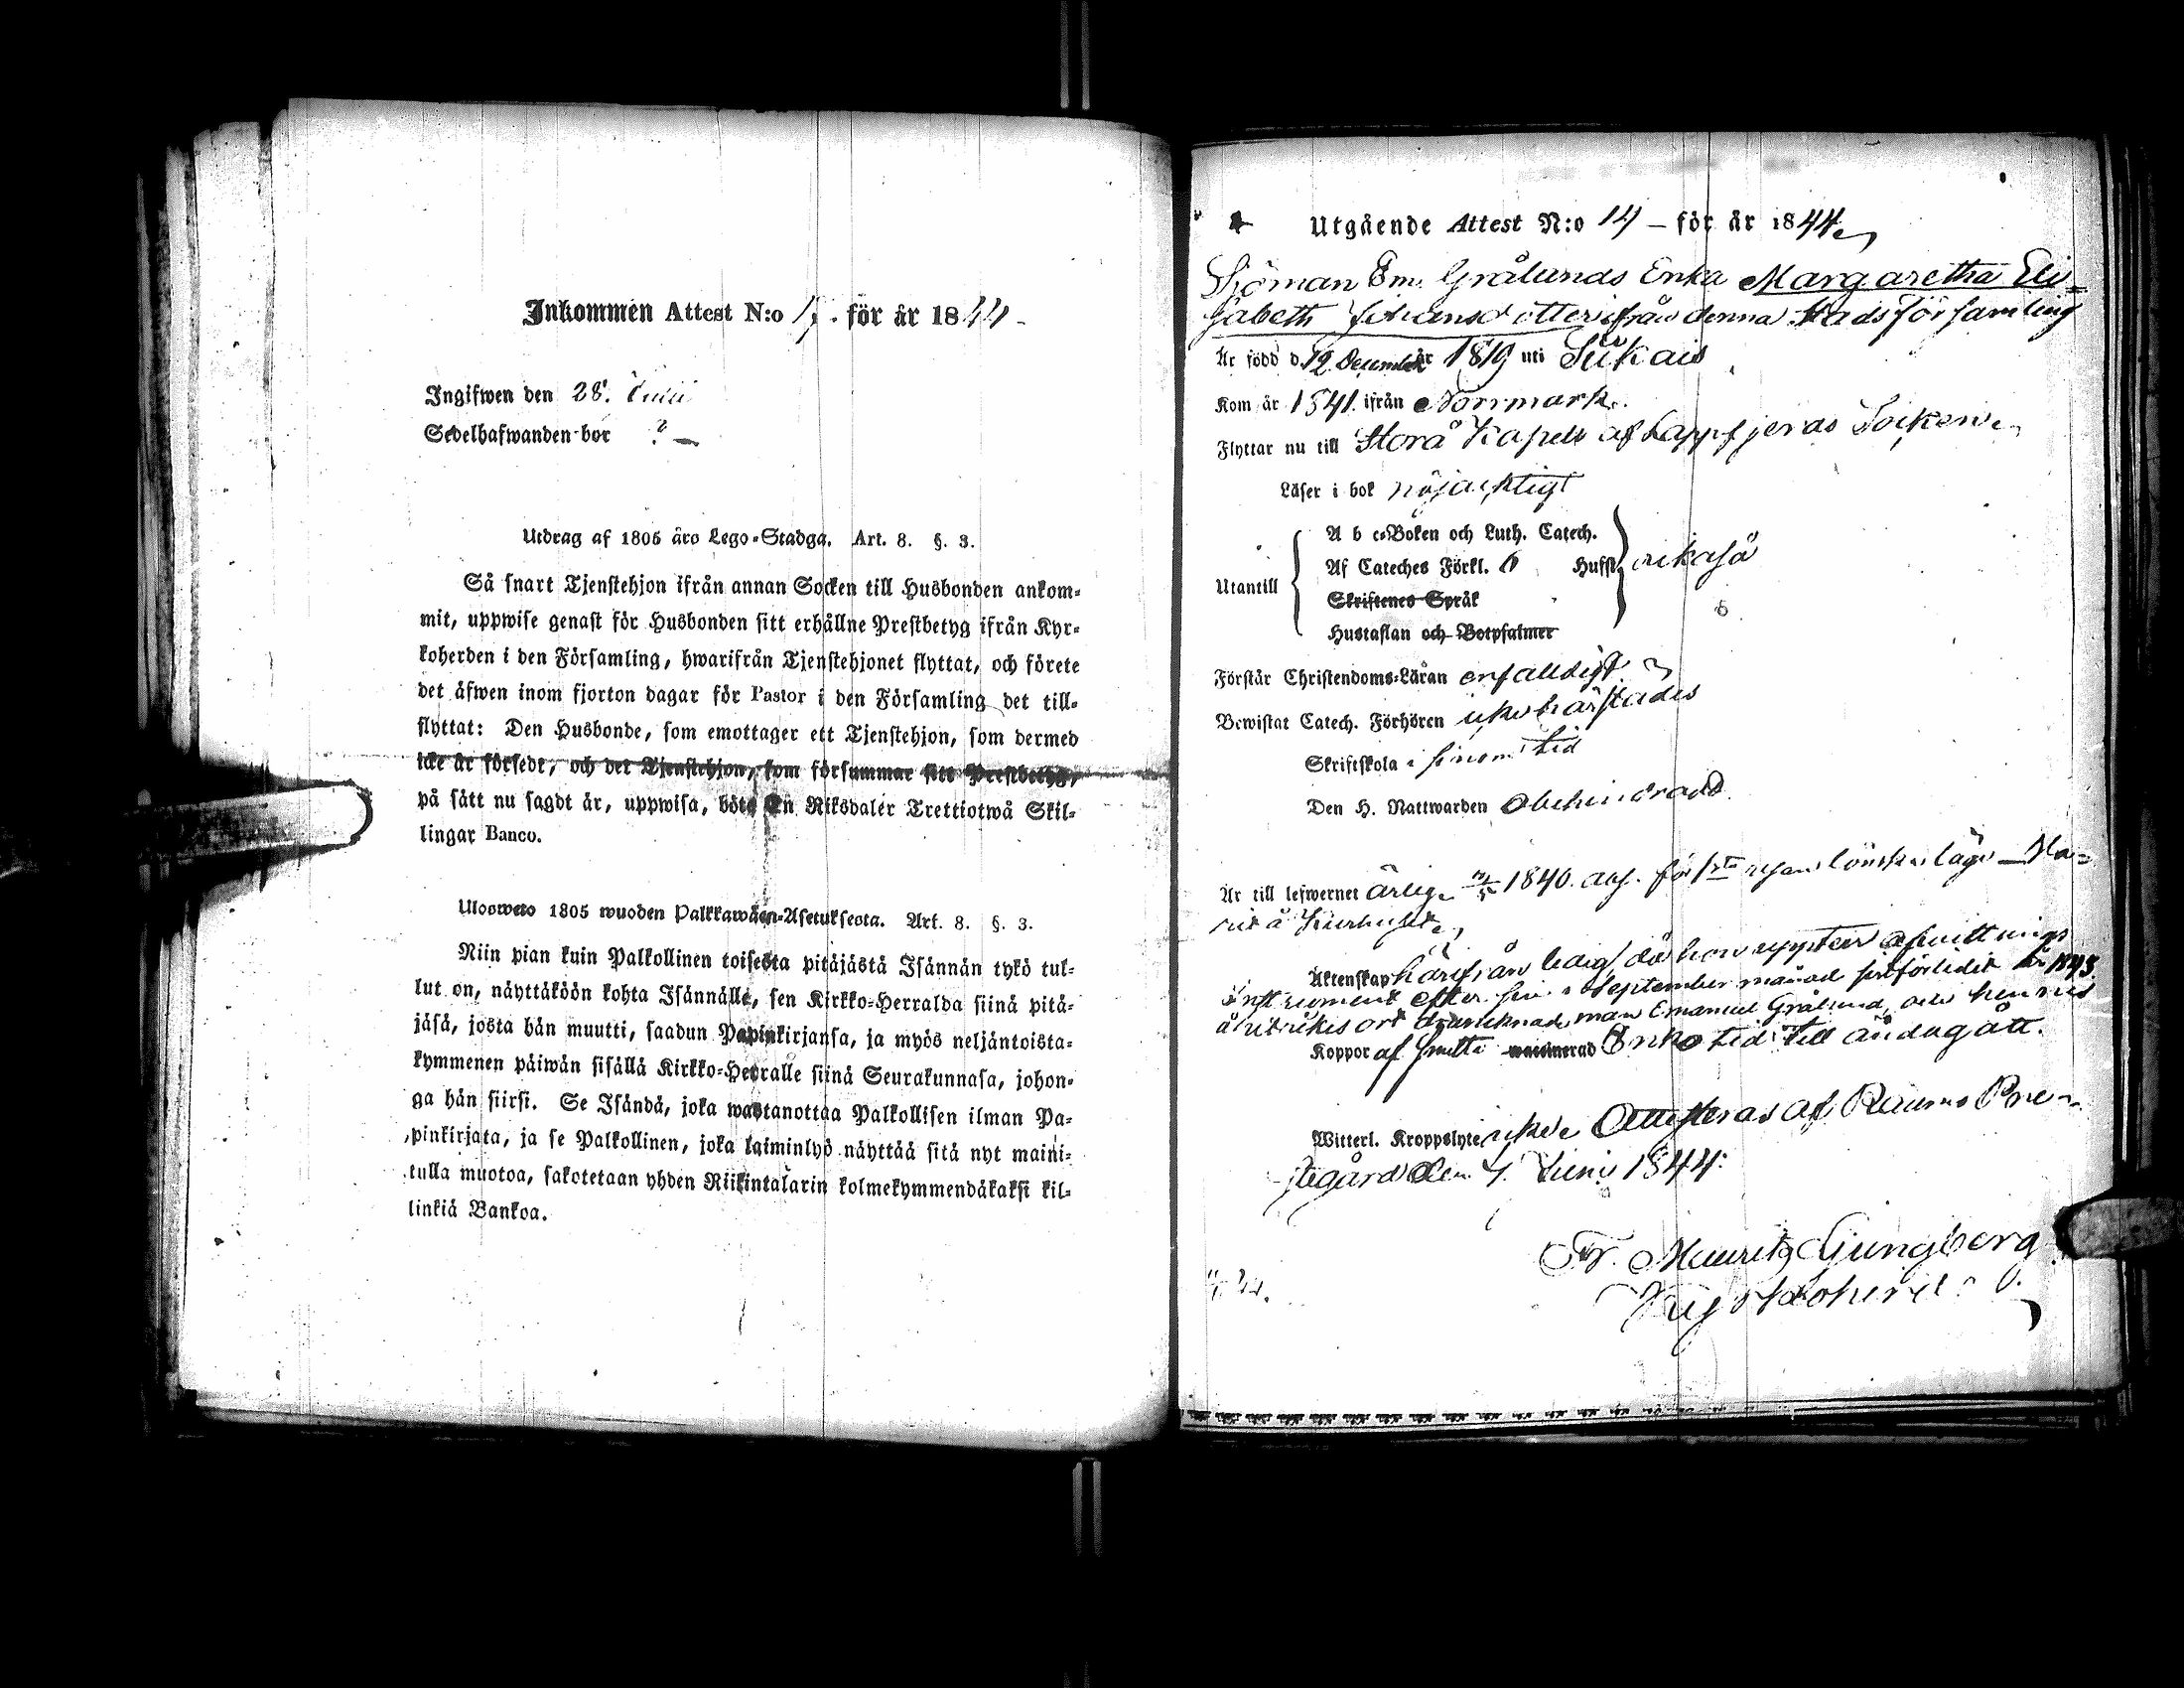 Inkommen Attest N:o 17. för år 1844 -
Ingifwen den 28. Junii
Sedelhafwanden bor ? -
Utdrag af 1805 års Lego-Stadga. Art. 8. §. 3.
Så snart Tjenstehjon ifrån annan Socken till Husbonden ankom-
mit, uppwise genast för Husbonden sitt erhållne Prestbetyg ifrån Kyr-
koherden i den Församling, hwarifrån Tjenstehjonet flyttat, och förete
det äfwen inom fjorton dagar för Pastor i den Församling det till-
flyttat: Den Husbonde, som emottager ett Tjenstehjon, som dermed
icke är försedt, och det Tjenstehjon, som försummar sitt Prestbetyg,
på sätt nu sagdt är, uppwisa, böte En Riksdaler Trettiotwå Skil-
lingar Banco.
Ulosweto 1805 wuoden Palkkawäen-Asetuksesta. Art. 8. §. 3.
Niin pian kuin Palkollinen toisesta pitäjästä Isännän tykö tul-
lut on, näyttäköön kohta Isännälle, sen Kirkko-Herralda siinä pitä-
jäsä, josta hän muutti, saadun Papinkirjansa, ja myös neljäntoista-
kymmenen päiwän sisällä Kirkko-Herralle siinä Seurakunnasa, johon-
ga hän siirsi. Se Isändä, joka wastanottaa Palkollisen ilman Pa-
pinkirjata, ja se Palkollinen, joka laiminlyö näyttää sitä nyt maini-
tulla muotoa, sakotetaan yhden Riikintalarin kolmekymmendäkaksi kil-
linkiä Bankoa.
Utgående Attest N:o 14 - för år 1844
Sjöman Em. Grålunds Enka Margaretha Eli-
sabeth Johansdotter ifrån denna Stads Församling
Är född d. 12 December år 1819 uti Siikais
Kom år 1841. ifrån Norrmark.
Flyttar nu till Storå Kapell af Lappfjerds Socken
Läser i bok nöjaktigt
Utantill
A b c-Boken och Luth. Catech.
Af Cateches Förkl. 6 Hufst. likaså
Skriftenes Språk
Hustaflan och Botpsalmer
Förstår Christendoms-Läran enfalldigt.
Bewistat Catech. Förhören icke härstädes
Skriftskola i sinom tid
Den H. Nattwarden Obehindrad.
Är till lefwernet ärlig. 1840. abs. för 1sta resan lönskaläge
Äktenskap härifrån ledig, då hon uppter afwittnings
Instrument efter sin i September månad sistförledit år 1843.
å utrikes ort drunknade man Emanuel Grålund, och hennes
Koppor af smitta waccinerad Enko tid till ända gått.
Witterl. Kroppslyte icke. Attesteras af Raumo Pre-
stegård den 4. Junii 1844.
Fr. Mauritz Ljungberg
Kyrkoherde